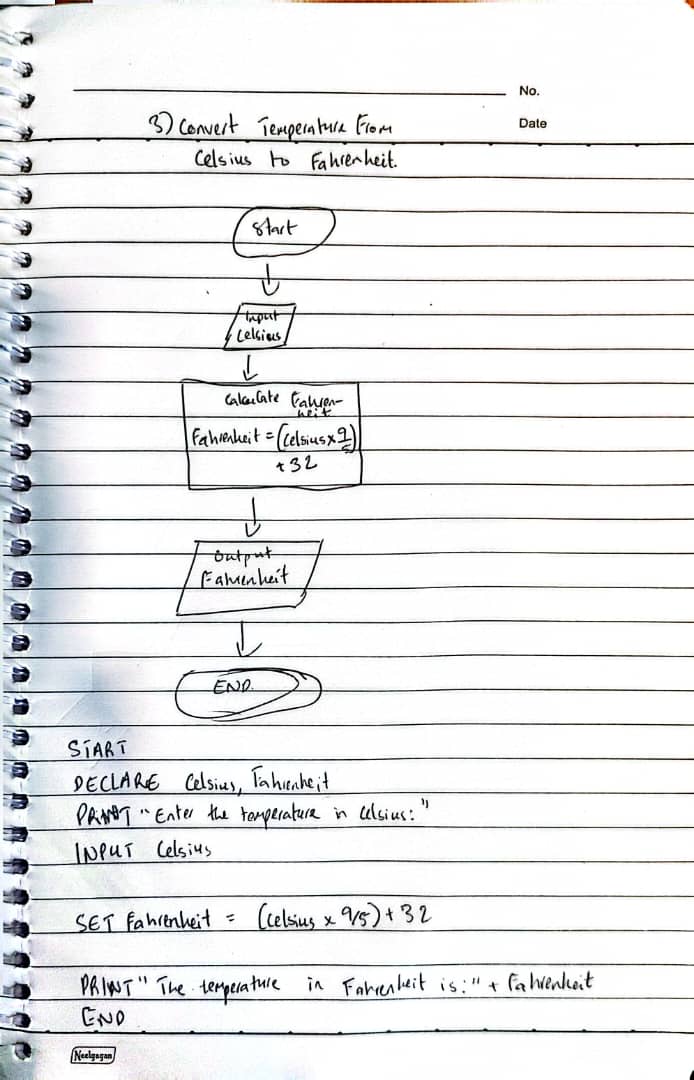 No.
Date
3) Convert Temperature From
Celsius to Fahrenheit.
Start
Input
Celsius
Calculate Fahren-
heit
Fahrenheit = (Celsius x 9/5)
+ 32
Output
Fahrenheit
END.
START
DECLARE Celsius, Fahrenheit
PRINT "Enter the temperature in Celsius:"
INPUT Celsius
SET Fahrenheit = (Celsius x 9/5) + 32
PRINT "The temperature in Fahrenheit is:" + Fahrenheit
END
Neelgagan